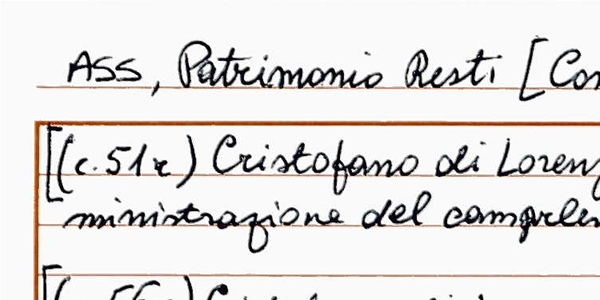 ASS, Patrimonio Resti [Con
[(c.51r) Cristofano di Lorenz
ministrazione del